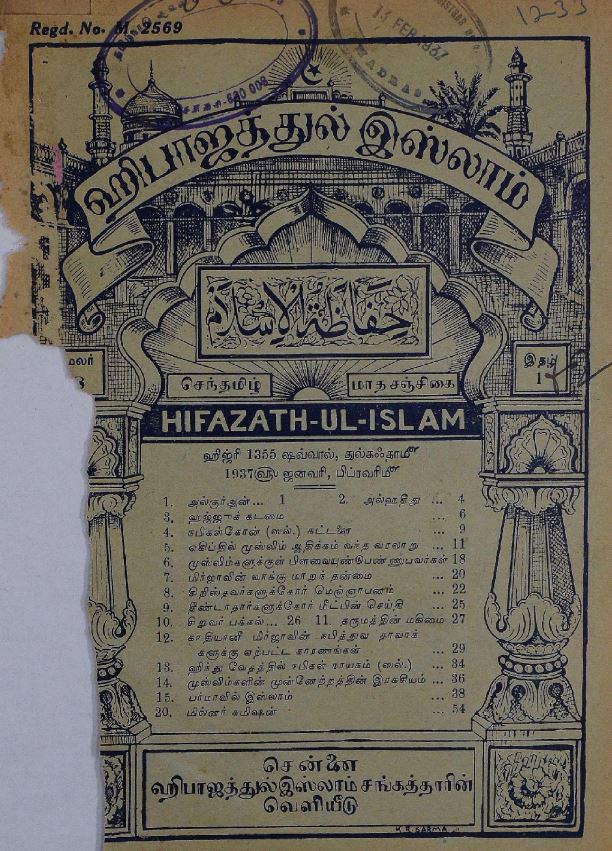 Regd. No. M. 2569
12-33
13 FEB 1937
MADRAS
ஹிபாஜத்துல் இஸ்லாம்
حفاظة الإسلام
மலர்
இதழ்
1
செந்தமிழ் மாதசஞ்சிகை
HIFAZATH-UL-ISLAM
ஹிஜ்ரி 1355 ஷவ்வால், துல்கஃதாமீ
1937௵ ஜனவரி, பிப்ரவரிமீ
1. அல்குர்ஆன் ... 1 2. அல்ஹதிது ... 4
3. ஹஜ்ஜுக் கடமை ... 6
4. நபிகள்கோன் (ஸல்.) கட்டளை ... 9
5. எகிப்தில் முஸ்லிம் ஆதிக்கம் வந்த வரலாறு ... 11
6. முஸ்லிம்களுக்குள் பிளவையுண்டுபண்ணுபவர்கள் 18
7. மிர்ஜாவின் வாக்கு மாறுந் தன்மை ... 20
8. கிறிஸ்தவர்களுக்கோர் மெஞ்ஞாபனம் ... 22
9. தீண்டாதார்களுக்கோர் மீட்பின் செய்தி ... 25
10. சிறுவர் பக்கல் ... 26 11. தருமத்தின் மகிமை 27
12. காதியானி மிர்ஜாவின் நபித்துவ தாவாக்
களுக்கு ஏற்பட்ட காரணங்கள் ... 29
13. ஹிந்து வேதத்தில் நபிகள் நாயகம் (ஸல்.) ... 34
14. முஸ்லிம்களின் முன்னேற்றத்தின் இரகசியம் ... 36
15. பர்மாவில் இஸ்லாம் ... 38
20. மில்னர் கமிஷன் ... 54
சென்னை
ஹிபாஜத்துல்இஸ்லாம்சங்கத்தாரின்
வெளியீடு
K. R. SARMA